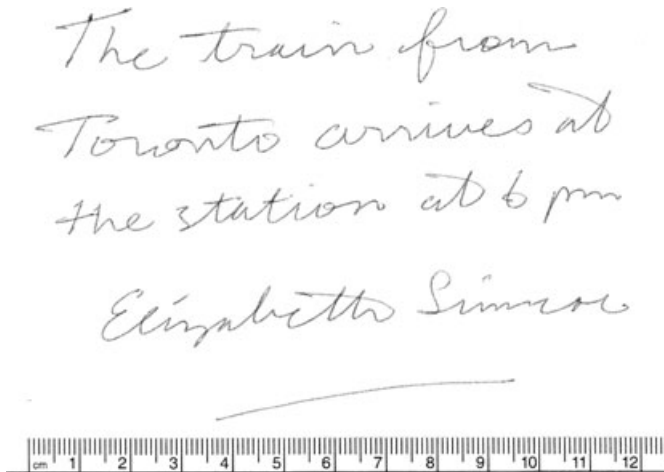 The train from
Toronto arrives at
the station at 6 pm
Elizabeth Simcoe
cm 1 2 3 4 5 6 7 8 9 10 11 12